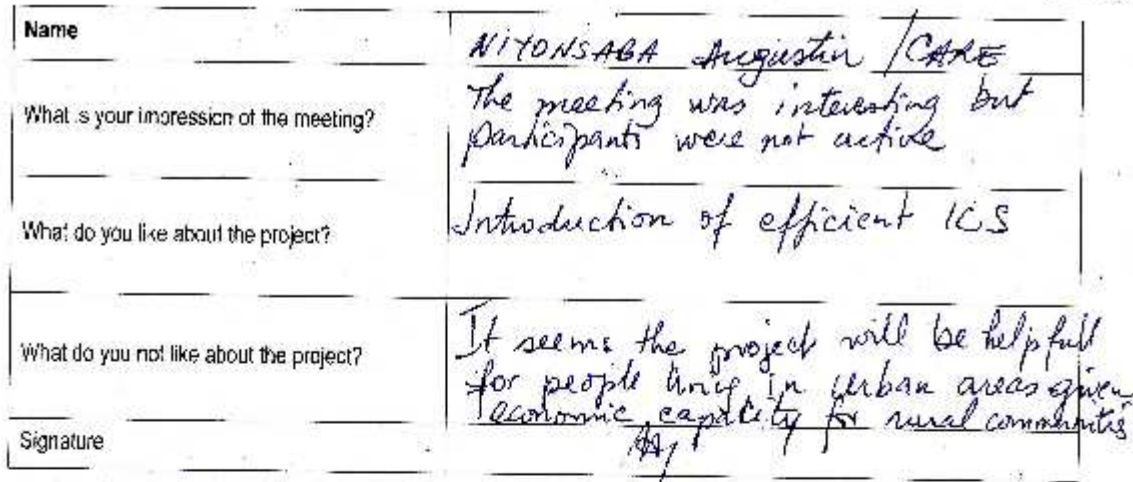 Name
NIYONSABA Augustin / CARE
What is your impression of the meeting?
The meeting was interesting but
participants were not active
What do you like about the project?
Introduction of efficient ICS
What do you not like about the project?
It seems the project will be helpfull
for people living in urban areas given
economic capacity for rural communities
Signature